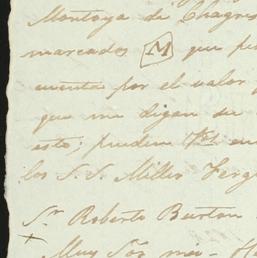 Montoya de Chagres
marcados M que pe
cuenta por el valor
que me digan su
esto; pueden Vds en
los S.S. Miller Ferg
Sr. Roberto Burton
Muy Sor mio - H